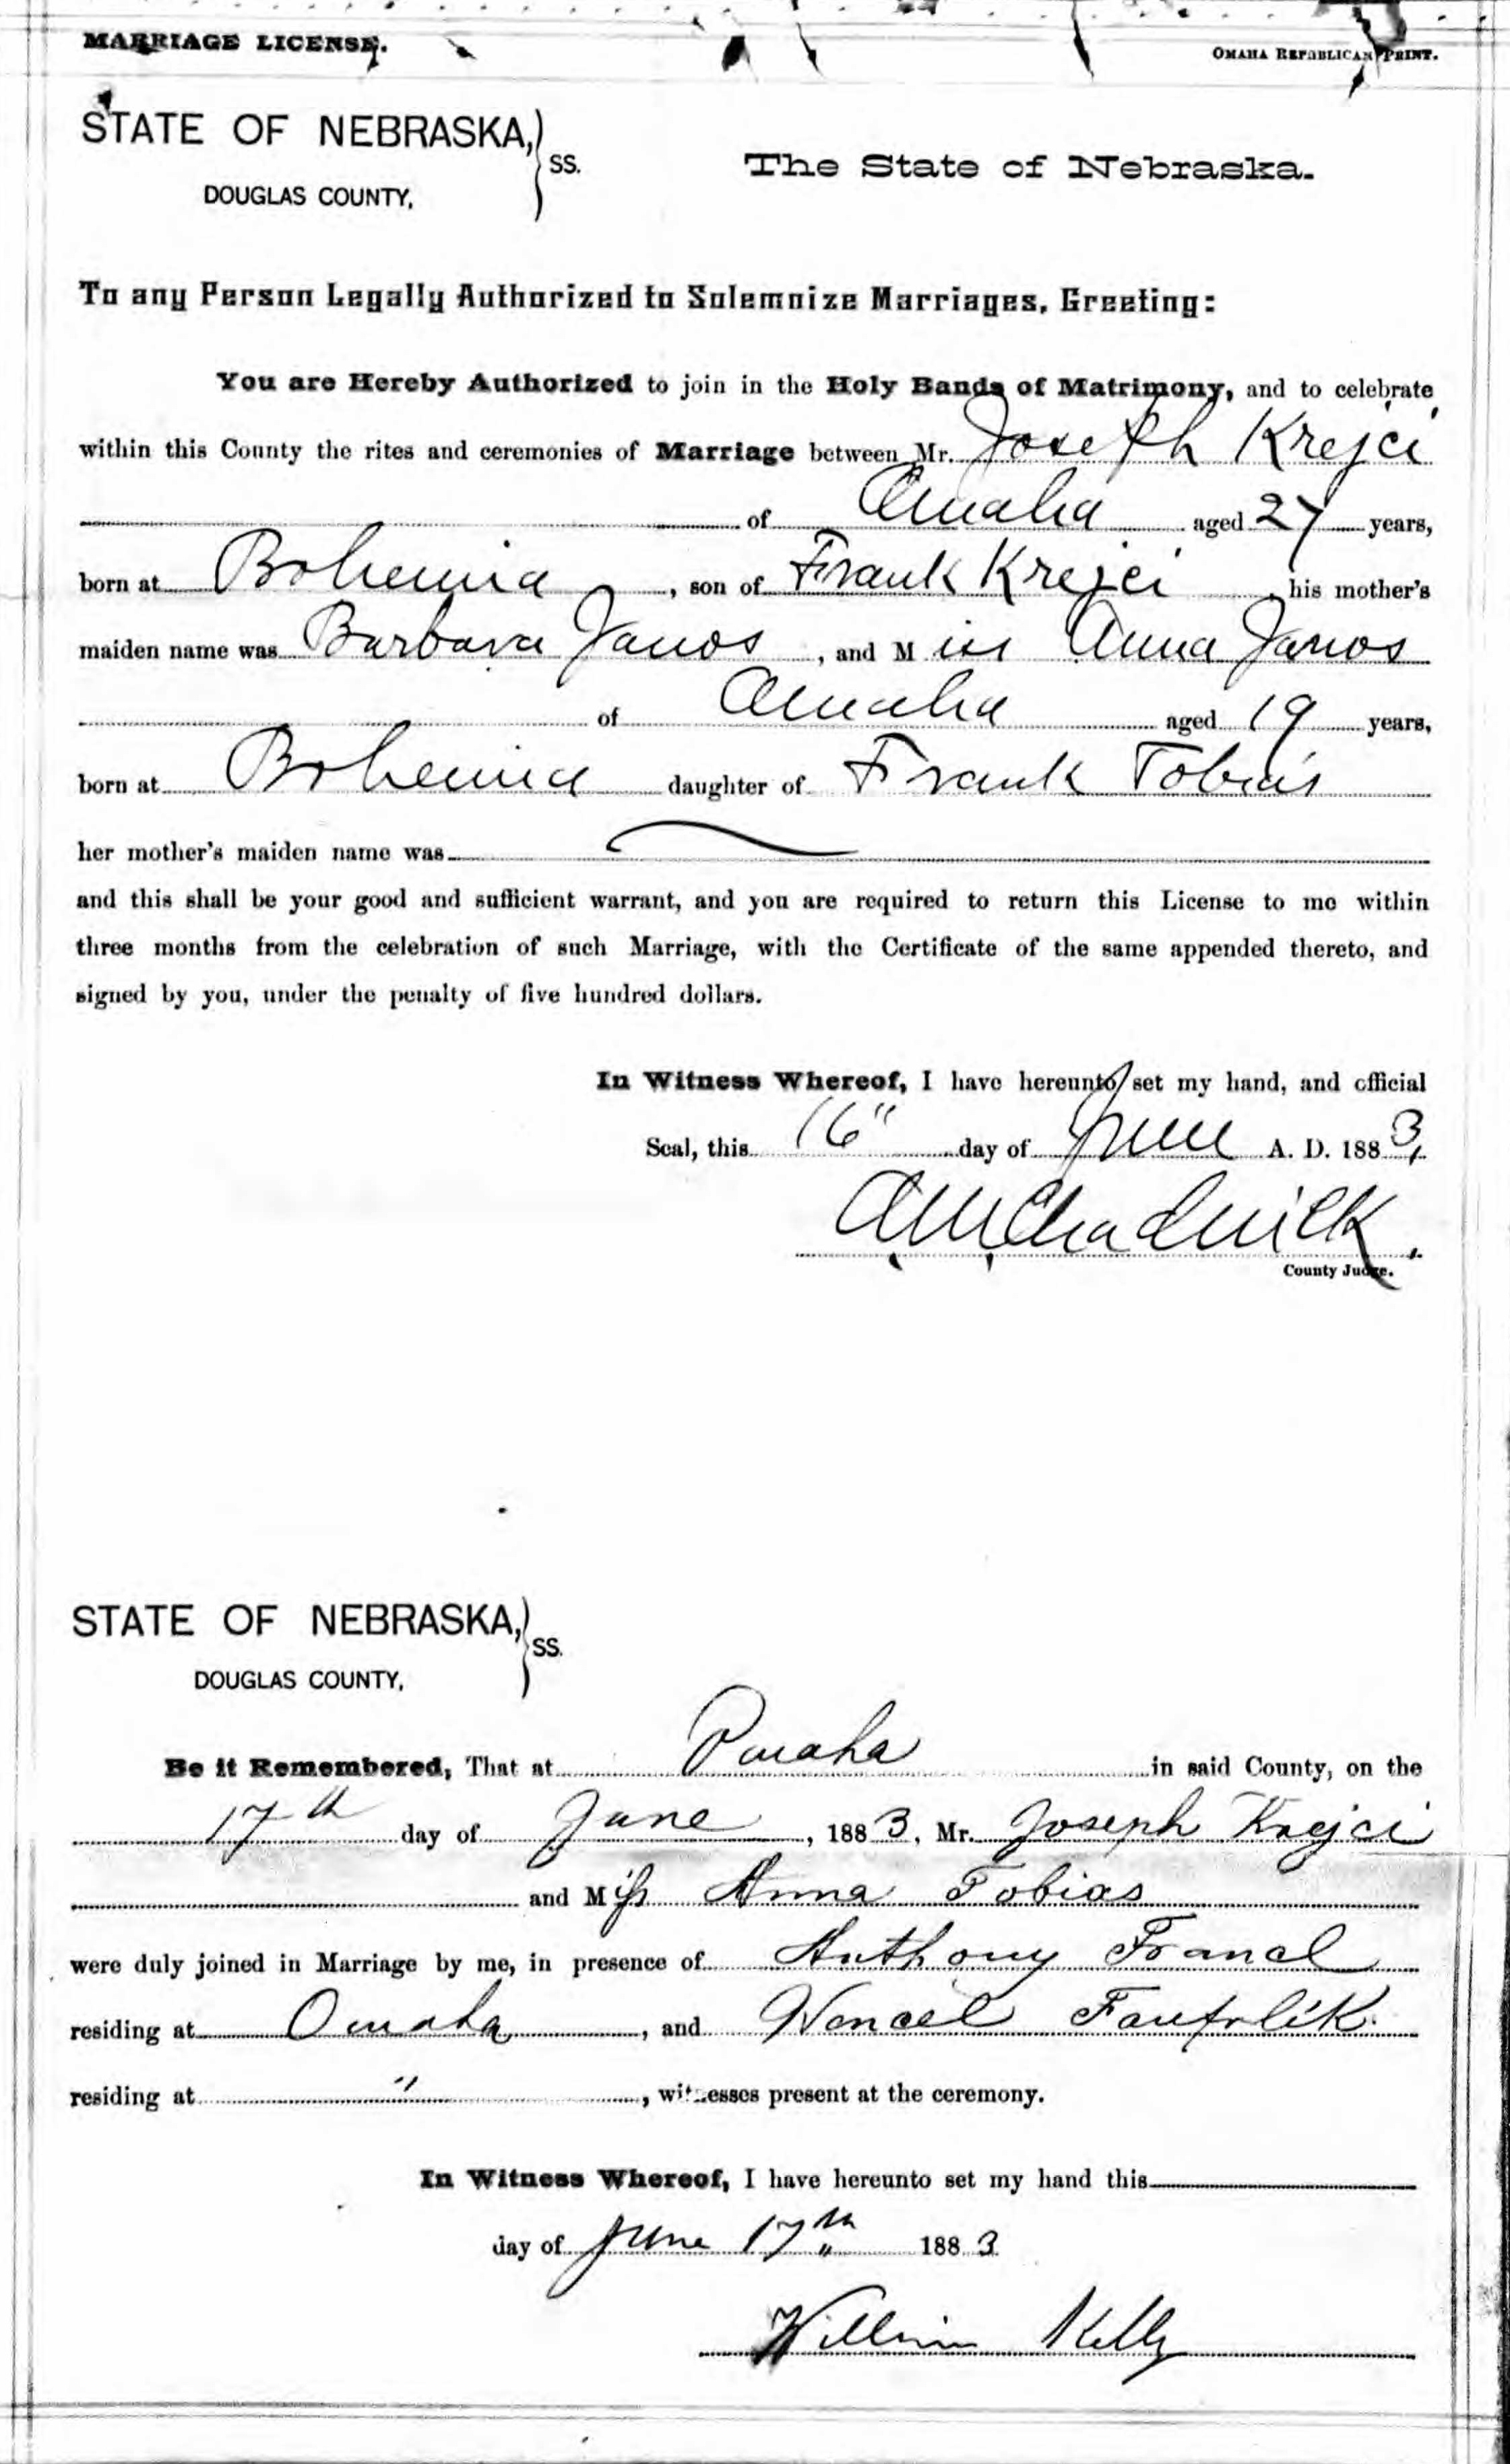 MARRIAGE LICENSE.
OMAHA REPUBLICAN PRINT.
STATE OF NEBRASKA,
DOUGLAS COUNTY,
SS.
The State of Nebraska.
To any Person Legally Authorized to Solemnize Marriages, Greeting:
You are Hereby Authorized to join in the Holy Bands of Matrimony, and to celebrate
within this County the rites and ceremonies of Marriage between Mr. Joseph Krejci
of Omaha aged 27 years,
born at Bohemia, son of Frank Krejci his mother's
maiden name was Barbara Janos, and Miss Anna Janos
of Omaha aged 19 years,
born at Bohemia daughter of Frank Tobias
her mother's maiden name was
and this shall be your good and sufficient warrant, and you are required to return this License to me within
three months from the celebration of such Marriage, with the Certificate of the same appended thereto, and
signed by you, under the penalty of five hundred dollars.
In Witness Whereof, I have hereunto set my hand, and official
Seal, this 16" day of June A. D. 1883,
A M Chadwick.
County Judge.
STATE OF NEBRASKA,
DOUGLAS COUNTY,
SS.
Be it Remembered, That at Omaha in said County, on the
17th day of June, 1883, Mr. Joseph Krejci
and Miss Anna Tobias
were duly joined in Marriage by me, in presence of Anthony Francl
residing at Omaha, and Wencel
residing at ", witnesses present at the ceremony.
In Witness Whereof, I have hereunto set my hand this
day of June 17th 1883
William Kelly